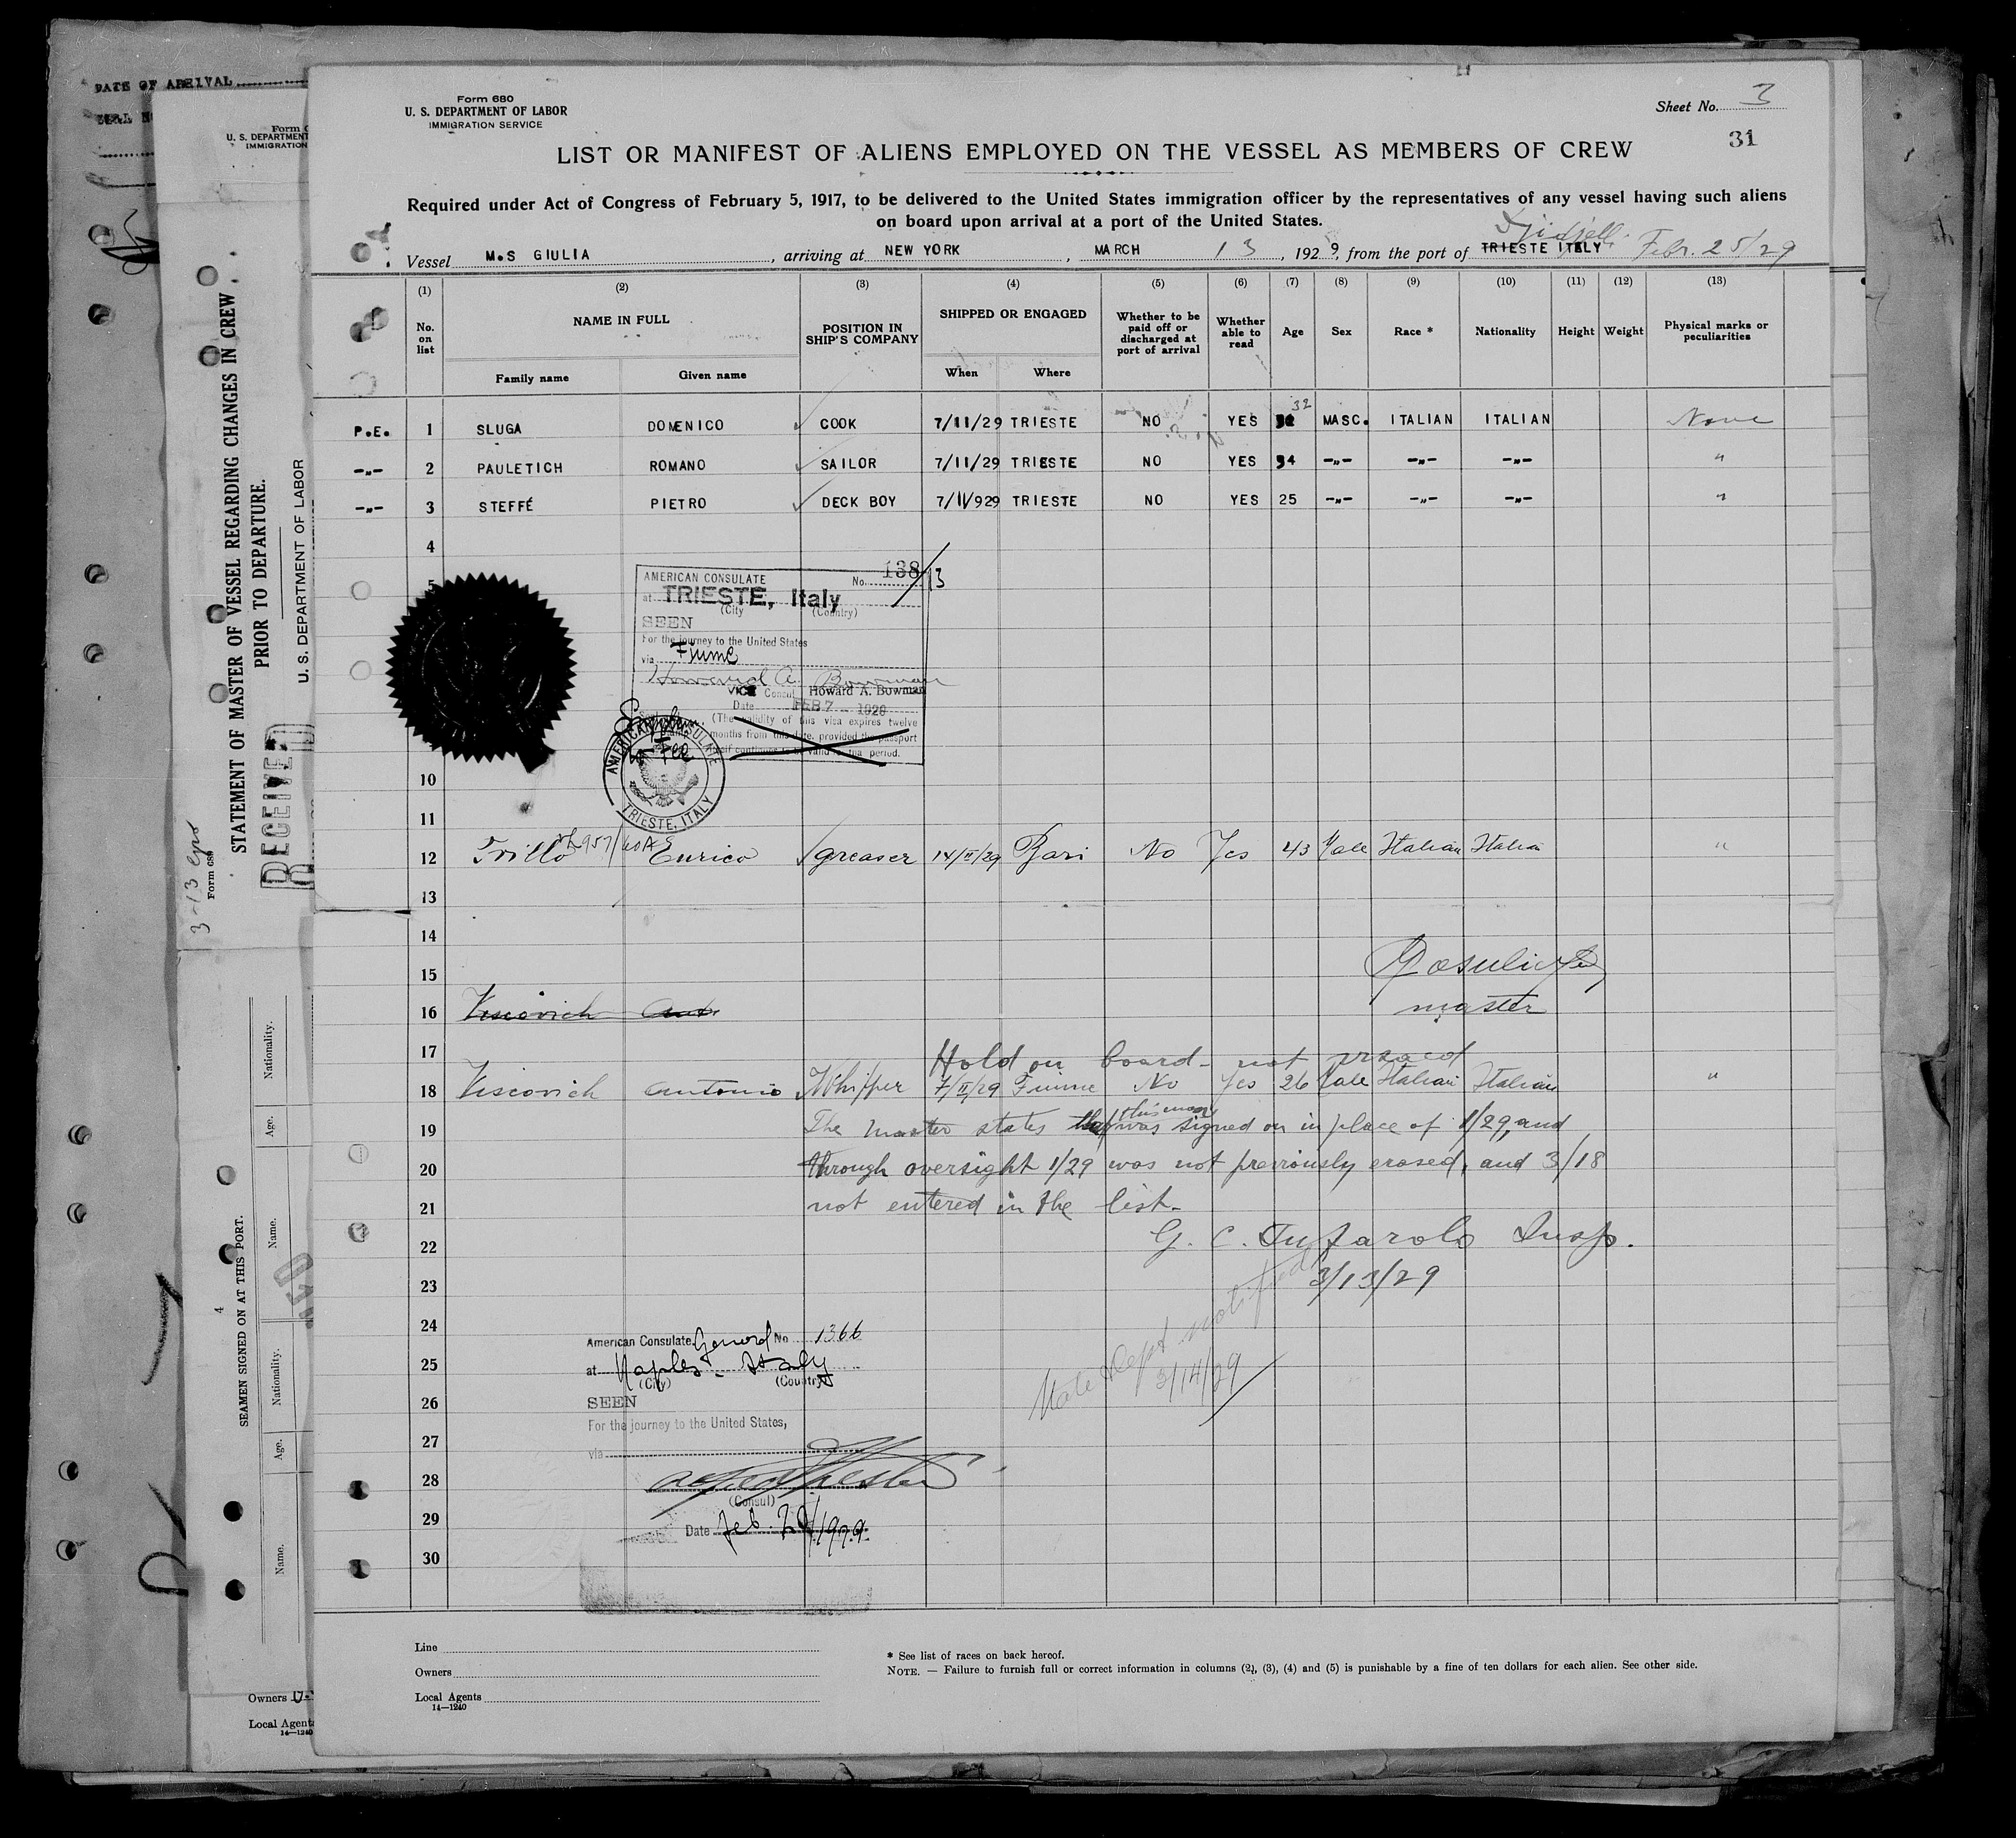 DATE OF ARRIVAL
Form 680
U. S. DEPARTMENT OF LABOR
IMMIGRATION SERVICE
Sheet No. 3
31
LIST OR MANIFEST OF ALIENS EMPLOYED ON THE VESSEL AS MEMBERS OF CREW
Required under Act of Congress of February 5, 1917, to be delivered to the United States immigration officer by the representatives of any vessel having such aliens
on board upon arrival at a port of the United States.
Djidjelli
Vessel M.S GIULIA, arriving at NEW YORK, MARCH 13, 1929, from the port of TRIESTE ITALY Febr. 25/29
(1) (2) (3) (4) (5) (6) (7) (8) (9) (10) (11) (12) (13)
No. on list NAME IN FULL POSITION IN SHIP'S COMPANY SHIPPED OR ENGAGED Whether to be paid off or discharged at port of arrival Whether able to read Age Sex Race * Nationality Height Weight Physical marks or peculiarities
Family name Given name When Where
32
P.E. 1 SLUGA DOMENICO COOK 7/11/29 TRIESTE NO YES MASC. ITALIAN ITALIAN None
-"- 2 PAULETICH ROMANO SAILOR 7/11/29 TRIESTE NO YES 34 -"- -"- -"- "
-"- 3 STEFFÉ PIETRO DECK BOY 7/11/929 TRIESTE NO YES 25 -"- -"- -"- "
4
5
10
11
AMERICAN CONSULATE No. 138/13
at TRIESTE, Italy
(City (Country)
SEEN
For the journey to the United States
via Fiume
Howard A. Bowman
VICE Consul Howard A. Bowman
Date FEB 7 1929
(The validity of this visa expires twelve
months from this date, provided the passport
itself continues to be valid for that period.
No Fee
AMERICAN CONSULATE
TRIESTE, ITALY
12 Trillo Enrico greaser 14/II/29 Bari No Yes 43 Male Italian Italian "
13
14
15
master
16 Viscovich Ant.
17 Hold on board - not visaed
18 Viscovich Antonio Whipper 7/II/29 Fiume No Yes 26 Male Italian Italian "
this man
19 The master states that was signed on in place of 1/29, and
20 through oversight 1/29 was not previously erased, and 3/18
21 not entered in the list.
22 G. C. Tufarolo Insp.
23 3/13/29
24
25
26
27
28
29
30
State Dept notified
3/14/29
American Consulate General No 1366
at Naples - Italy
(City) (Country)
SEEN
For the journey to the United States,
via
(Consul)
Date Feb. 20, 1929.
Line
Owners
Local Agents
14—1240
* See list of races on back hereof.
NOTE. — Failure to furnish full or correct information in columns (2), (3), (4) and (5) is punishable by a fine of ten dollars for each alien. See other side.
Form 6
U. S. DEPARTMENT
IMMIGRATION
STATEMENT OF MASTER OF VESSEL REGARDING CHANGES IN CREW
PRIOR TO DEPARTURE.
U. S. DEPARTMENT OF LABOR
RECEIVED
Form 689
3-13
4
SEAMEN SIGNED ON AT THIS PORT.
Nationality.
Age.
Name.
Nationality.
Age.
Name.
Owners
Local Agents
14—1240